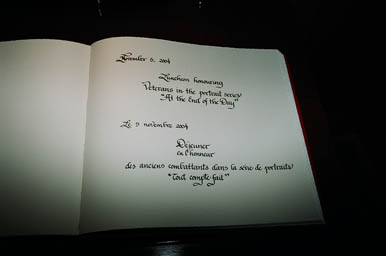 November 5, 2004
Luncheon honouring
Veterans in the portrait series
"At the End of the Day"
Le 5 novembre 2004
Déjeuner
en l'honneur
des anciens combattants dans la série de portraits
"Tout compte fait"